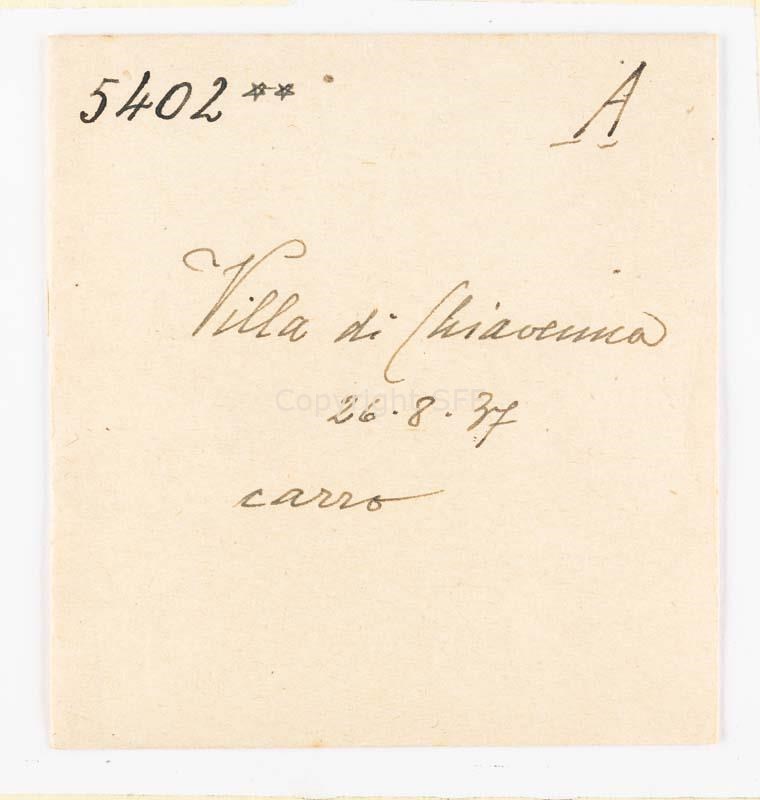 5402** A
Villa di Chiavenna
Copyright SFE
26.8.37
carro